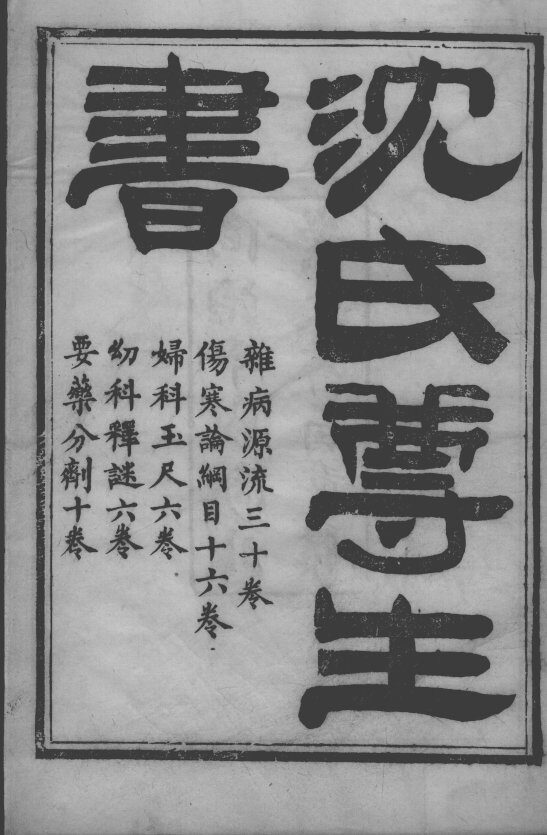 沈氏尊生
書
雜病源流三十卷
傷寒論綱目十六卷
婦科玉尺六卷
幼科釋謎六卷
要藥分劑十卷